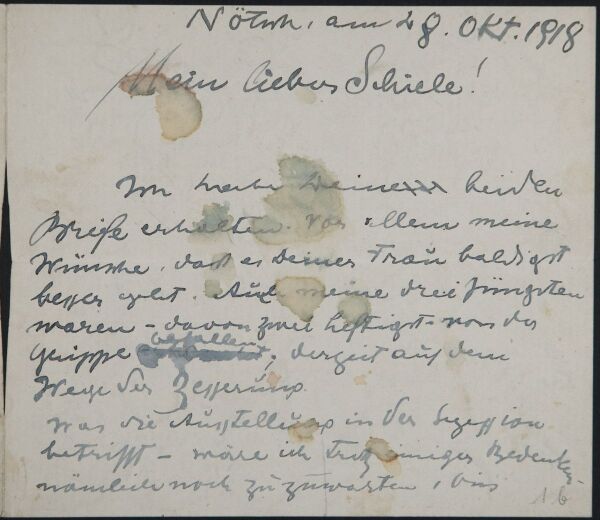 Nötsch, am 28. Okt. 1918
Mein lieber Schiele!
Ich habe Deine beiden
Briefe erhalten. Vor allem meine
Wünsche, dass es Deiner Frau baldigst
besser geht. Auch meine drei Jüngsten
waren – davon zwei heftigst – von der
Grippe befallen, derzeit auf dem
Wege der Besserung.
Was die Ausstellung in der Sezession
betrifft – wäre ich trotz einiger Bedenken
nämlich noch zuzuwarten, bis
16